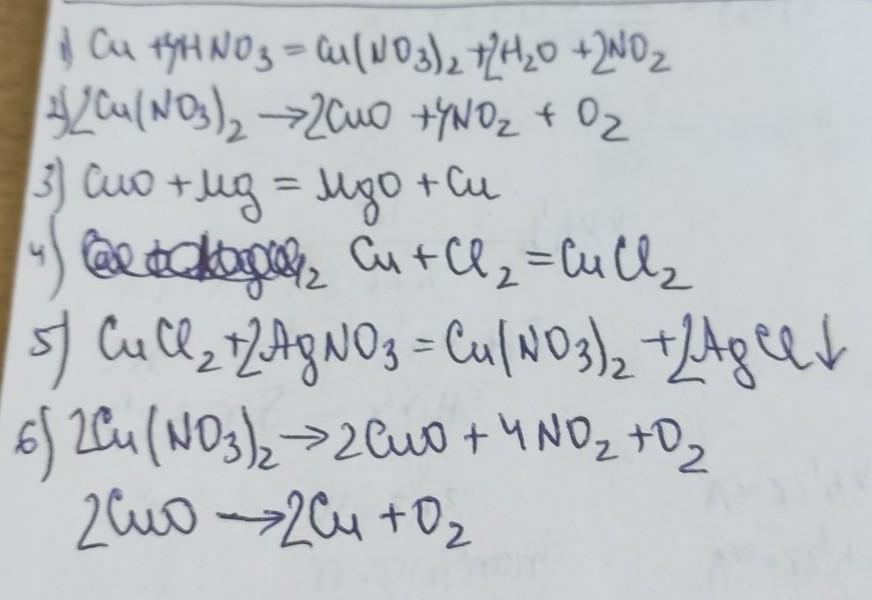 1) Cu + 4HNO₃ = Cu(NO₃)₂ + 2H₂O + 2NO₂
2) 2Cu(NO₃)₂ → 2CuO + 4NO₂ + O₂
3) CuO + Mg = MgO + Cu
4) Cu + Cl₂ = CuCl₂
5) CuCl₂ + 2AgNO₃ = Cu(NO₃)₂ + 2AgCl↓
6) 2Cu(NO₃)₂ → 2CuO + 4NO₂ + O₂
2CuO → 2Cu + O₂